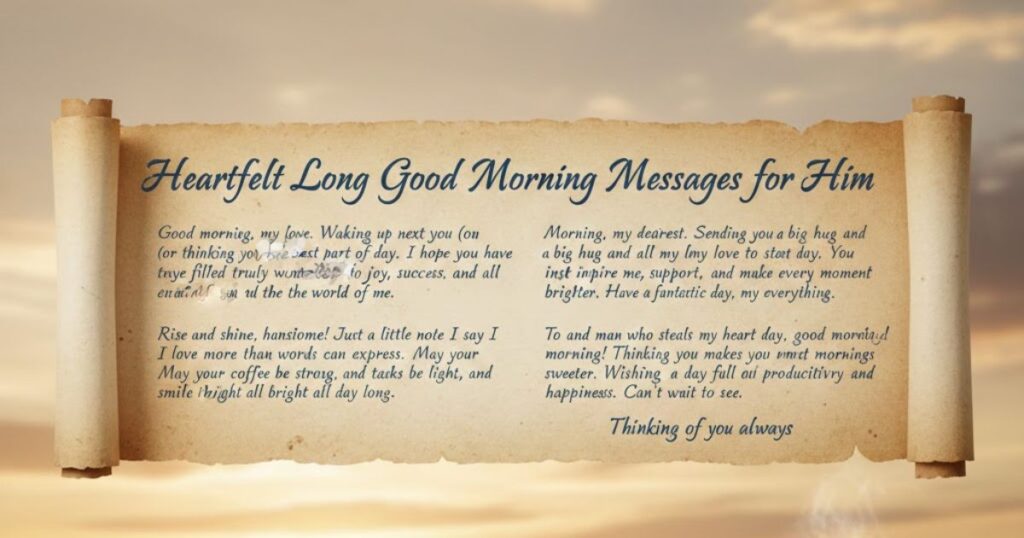 Heartfelt Long Good Morning Messages for Him
Good morning, my love. Waking up next you (on
(or thinking part of day. I hope you have
filled truly to joy, success, and all
the the world of me.
Rise and shine, Just a little note I say I
I love more than words can express. May your
May your coffee be strong, and tasks be light, and
smile all bright all day long.
Morning, my dearest. Sending you a big hug and
a big hug and all my lmy love to start day. You
inst inpire me, support, and make every moment
brighter. Have a fantastic day, my everything.
To and man who steals my heart day, good
morning! Thinking you makes you mornings
sweeter. Wishing a day full and
happiness. Can't wait to see.
Thinking of you always